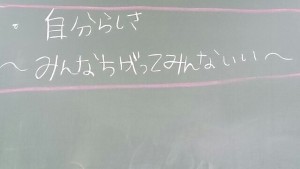 ・自分らしさ
～みんなちがってみんないい～